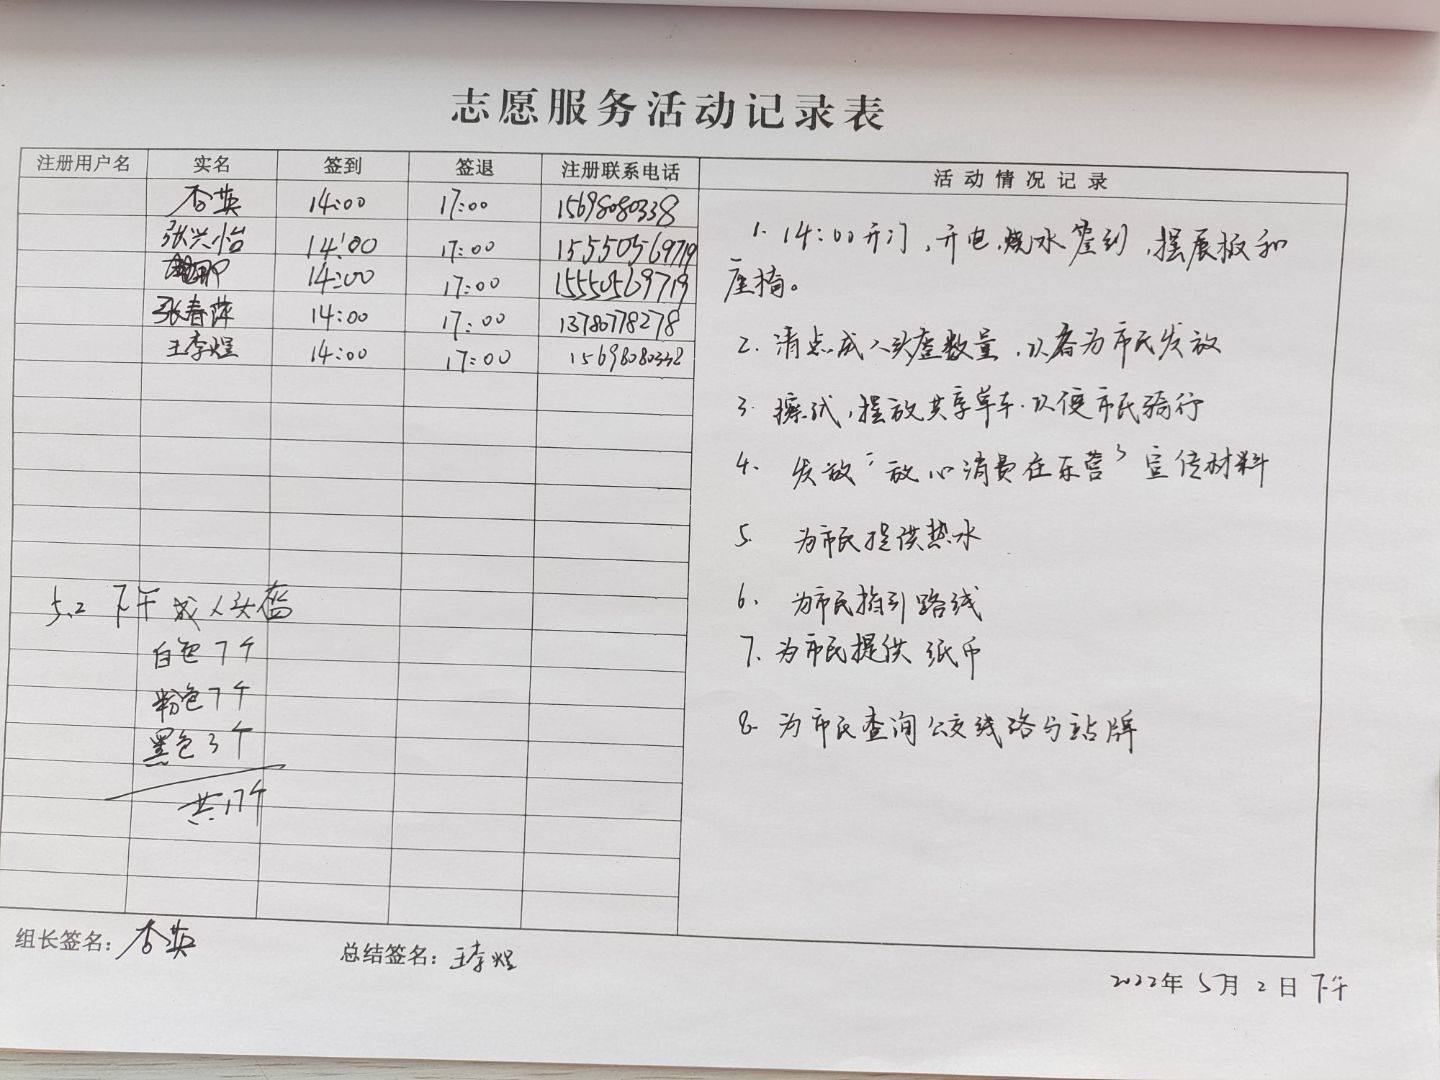 志愿服务活动记录表
注册用户名 实名 签到 签退 注册联系电话 活动情况记录
杏英 14:00 17:00 15698080338
张兴怡 14:00 17:00 15550569719
14:00 17:00 15550569719
张春萍 14:00 17:00 13780778278
王李煜 14:00 17:00 15698080338
1. 14:00开门,开电,烧水 签到,摆展板和
座椅。
2. 清点成人头盔数量,以备为市民发放
3. 擦拭,摆放共享单车.以便市民骑行
4. 发放“放心消费在东营”宣传材料
5. 为市民提供热水
6. 为市民指引路线
7. 为市民提供纸币
8. 为市民查询公交线路与站牌
5.2 下午 成人头盔
白色7个
粉色7个
黑色3个
共17个
组长签名:杏英 总结签名:王李煜
2022年5月2日下午